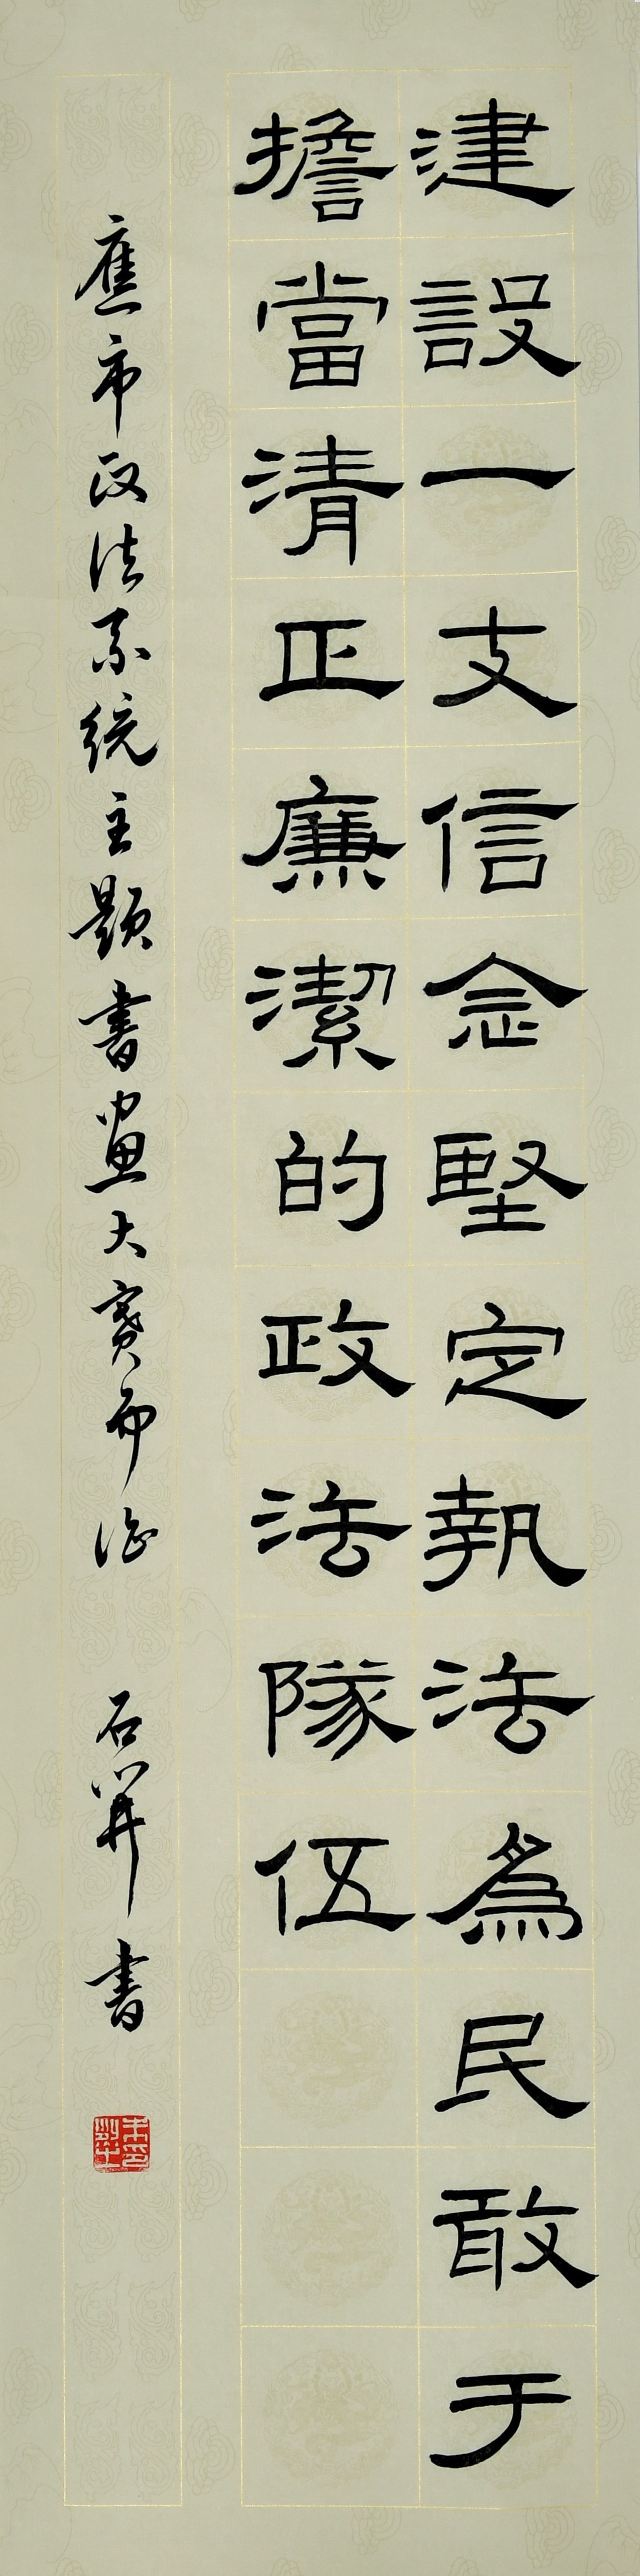 建設一支信念堅定執法為民敢于
擔當清正廉潔的政法隊伍
應市政法系統主題書畫大賽而作
石開書